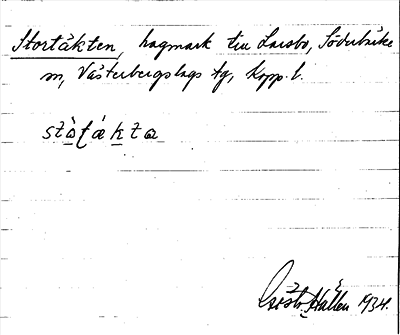 Stortäkten, hagmark till Larsbo, Söderbärke
sn, Västerbergslags tg, Kopp. l.
Gösta Hallén 1934.